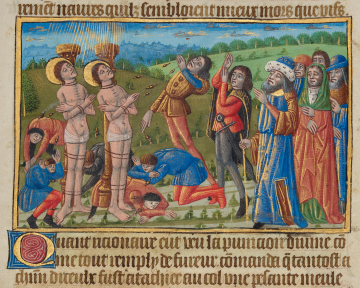 naures quilz sembloient mieux mors que vifz.
Quant ricionaire eut veu la punicion diuine co
me tout remply de fureur comanda q tantost a
chun diceulx fust atachier au col vne pesante meule